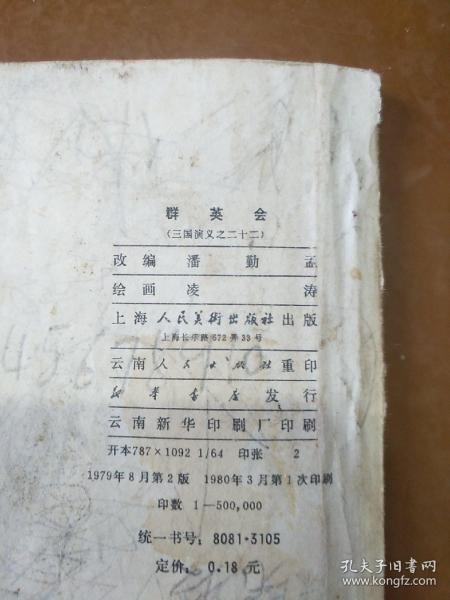 群英会
(三国演义之二十二)
改编 潘勤孟
绘画 凌涛
上海人民美術出版社出版
上海长乐路672弄33号
云南人民出版社重印
新华书店发行
云南新华印刷厂印刷
开本787×1092 1/64 印张 2
1979年8月第2版 1980年3月第1次印刷
印数 1—500,000
统一书号: 8081·3105
定价: 0.18元
孔夫子旧书网
www.kongfz.com